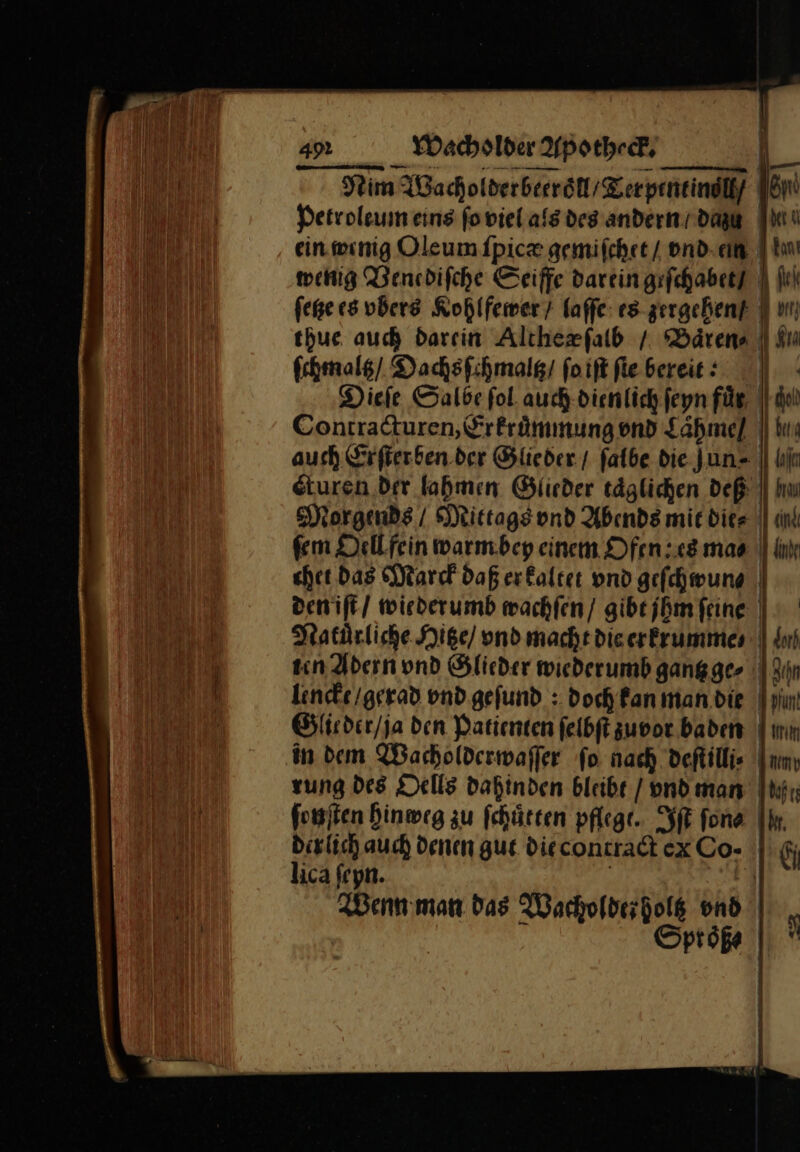 492 Wacholder Apotheck.
Nim Wacholderbeeröll / Terpentinöll /
Petroleum eins ſo viel als des andern / dazu
ein wenig Oleum ſpicæ gemiſchet / vnd ein
wenig Venediſche Seiffe darein geſchabet /
ſetze es vbers Kohlfewer / laſſe es zergehen /
thue auch darein Altheæſalb / Bären⸗
ſchmaltz / Dachsſchmaltz / ſo iſt ſie bereit :
Dieſe Salbe ſol auch dienlich ſeyn für
Contracturen, Erkrümmung vnd Lähme /
auch Erſterben der Glieder / ſalbe die Jun-
cturen der lahmen Glieder täglichen deß
Morgends / Mittags vnd Abends mit die⸗
ſem Oell fein warm bey einem Ofen : es ma⸗
chet das Marck daß erkaltet vnd geſchwun⸗
den iſt / wiederumb wachſen / gibt jhm ſeine
Natürliche Hitze / vnd macht die erkrumme⸗
ten Adern vnd Glieder wiederumb gantz ge⸗
lencke / gerad vnd geſund : doch kan man die
Glieder / ja den Patienten ſelbſt zuvor baden
in dem Wacholderwaſſer ſo nach deſtilli⸗
rung des Oells dahinden bleibt / vnd man
ſonſten hinweg zu ſchütten pflegt. Iſt ſon⸗
derlich auch denen gut die contract ex Co-
lica ſeyn.
Wenn man das Wacholderholtz vnd
Spröß⸗